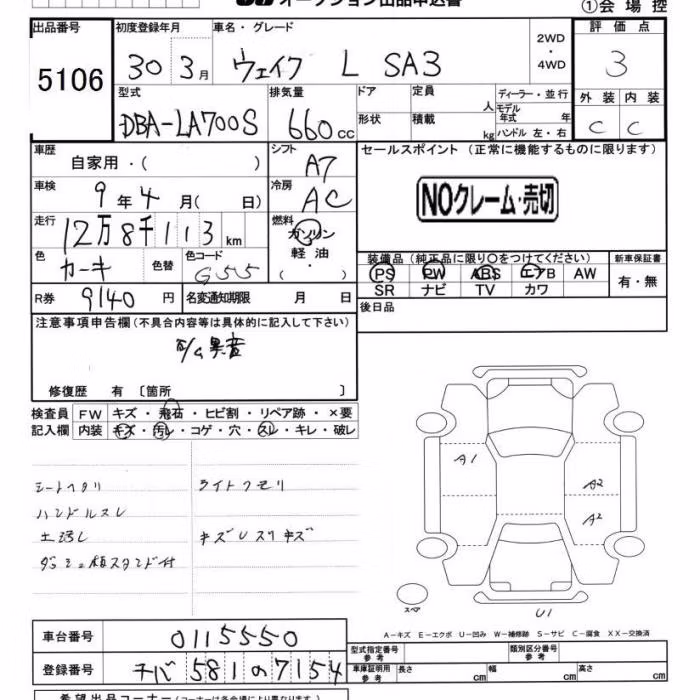 オークション出品申込書
①会場控
出品番号 初度登録年月 車名・グレード 2WD・4WD 評価点
5106 30 3月 ウェイク L SA3 3
型式 排気量 ドア 定員 人 ディーラー・並行 外装 内装
DBA-LA700S 660cc 形状 積載 kg モデル年式 年 ハンドル 左・右 C C
車歴 シフト セールスポイント (正常に機能するものに限ります)
自家用・( ) A7
車検 9年4月( 日) 冷房 AC NOクレーム・売切
走行 12万8千113km 燃料 ガソリン 軽油 ・( )
色 カーキ 色替 色コード G55
装備品 (純正品に限り○をつけてください) 新車保証書
PS PW ABS エアB AW 有・無
SR ナビ TV カワ
R券 9140円 名変通知期限 月 日 後日品
注意事項申告欄 (不具合内容等は具体的に記入して下さい)
異音
修復歴 有 〔箇所 〕
検査員 FW キズ・飛石・ヒビ割・リペア跡・×要
記入欄 内装 キズ・汚レ・コゲ・穴・スレ・キレ・破レ
シートヘタリ ライトクモリ
ハンドルスレ
キズUスリキズ
A1
A2
A2
スペア
U1
A-キズ E-エクボ U-凹み W-補修跡 S-サビ C-腐食 XX-交換済
車台番号 0115550 型式指定番号 参考 類別区分番号 参考
登録番号 千バ 581 の 7154 車庫証明用 参考 長さ cm 幅 cm 高さ cm
希望出品コーナー (コーナーは各会場により異なります)